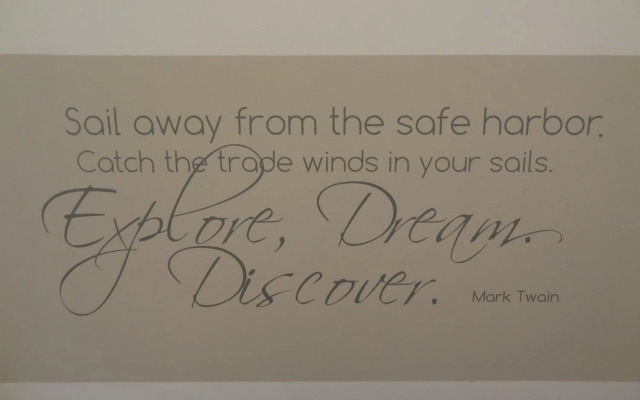 Sail away from the safe harbor.
Catch the trade winds in your sails.
Explore, Dream.
Discover.
Mark Twain